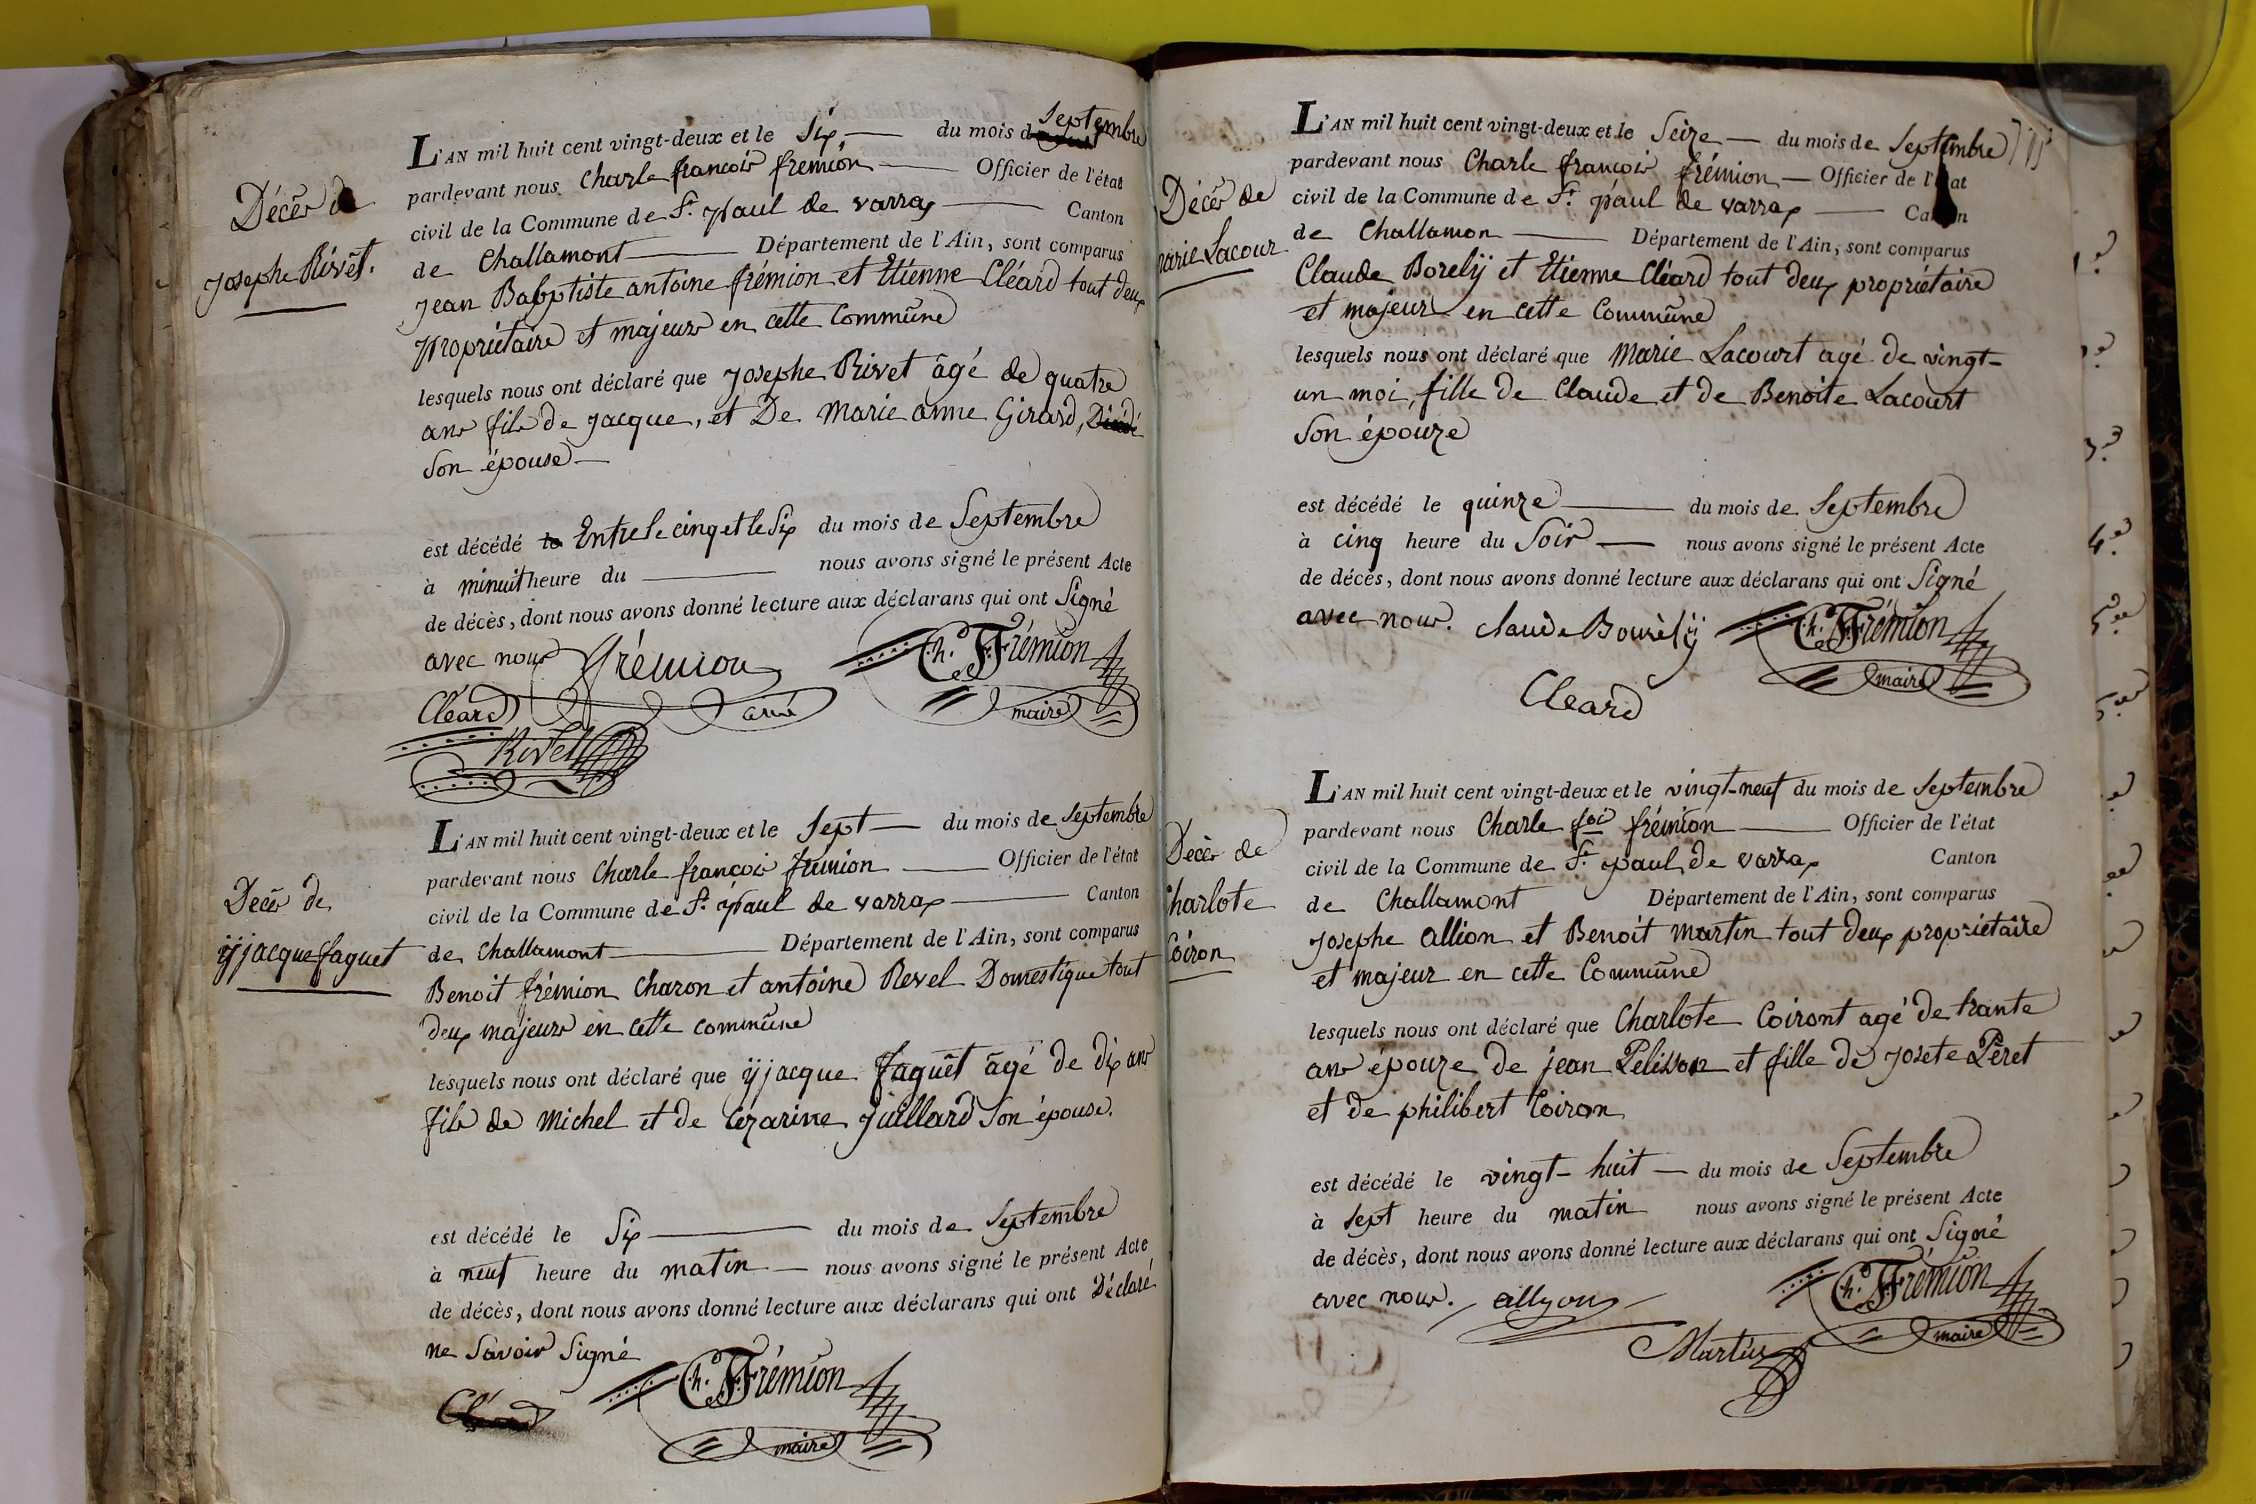 Décès de
Josephe Rivet.
L'AN mil huit cent vingt-deux et le Six du mois de Septembre
pardevant nous Charle françois frémion Officier de l'état
civil de la Commune de St. paul de varrax Canton
de Challamont Département de l'Ain, sont comparus
Jean Babptiste antoine frémion et Etienne Cléard tout deux
propriétaire et majeurs en cette Commune
lesquels nous ont déclaré que Josephe Rivet âgé de quatre
ans fils de jacque, et De marie anne Girard,
Son épouse
est décédé Entre le cinq et le Six du mois de Septembre
à minuit heure du nous avons signé le présent Acte
de décès, dont nous avons donné lecture aux déclarans qui ont Signé
avec nous frémion Ch. Frémion
Cléard maire
Rivet
Décès de
yjacque faguet
L'AN mil huit cent vingt-deux et le Sept du mois de Septembre
pardevant nous Charle françois frémion Officier de l'état
civil de la Commune de St. paul de varrax Canton
de Challamont Département de l'Ain, sont comparus
Benoit frémion Charon et antoine Revel Domestique tout
deux majeurs en cette commune
lesquels nous ont déclaré que yjacque faguêt âgé de dix ans
fils de Michel et de Cezarine Juillard Son épouse.
est décédé le Six du mois de Septembre
à neuf heure du matin nous avons signé le présent Acte
de décès, dont nous avons donné lecture aux déclarans qui ont Déclaré
ne Savoir Signé
Ch. Frémion
maire
Décès de
marie Lacour
L'AN mil huit cent vingt-deux et le Seize du mois de Septembre
pardevant nous Charle françois frémion Officier de l'état
civil de la Commune de St. paul de varrax Canton
de Challamon Département de l'Ain, sont comparus
Claude Borelÿ et Etienne Cléard tout deux propriétaire
et majeur en cette Commune
lesquels nous ont déclaré que Marie Lacourt agé de vingt-
un moi, fille de Claude et de Benoite Lacourt
Son épouze
est décédé le quinze du mois de Septembre
à cinq heure du Soir nous avons signé le présent Acte
de décès, dont nous avons donné lecture aux déclarans qui ont Signé
avec nous. Claude Bourelÿ Ch. Frémion
maire
Cleard
Décès de
Charlote
Coiron
L'AN mil huit cent vingt-deux et le vingt-neuf du mois de Septembre
pardevant nous Charle foi frémion Officier de l'état
civil de la Commune de St. paul de varrax Canton
de Challamont Département de l'Ain, sont comparus
Josephe allion et Benoit martin tout deux propriétaire
et majeur en cette Commune
lesquels nous ont déclaré que Charlote Coiront agé de trante
ans épouze de jean Pelisson et fille de Josete Péret
et de philibert Coiron
est décédé le vingt-huit du mois de Septembre
à Sept heure du matin nous avons signé le présent Acte
de décès, dont nous avons donné lecture aux déclarans qui ont Signé
avec nous. allyon Ch. Frémion
Martin maire